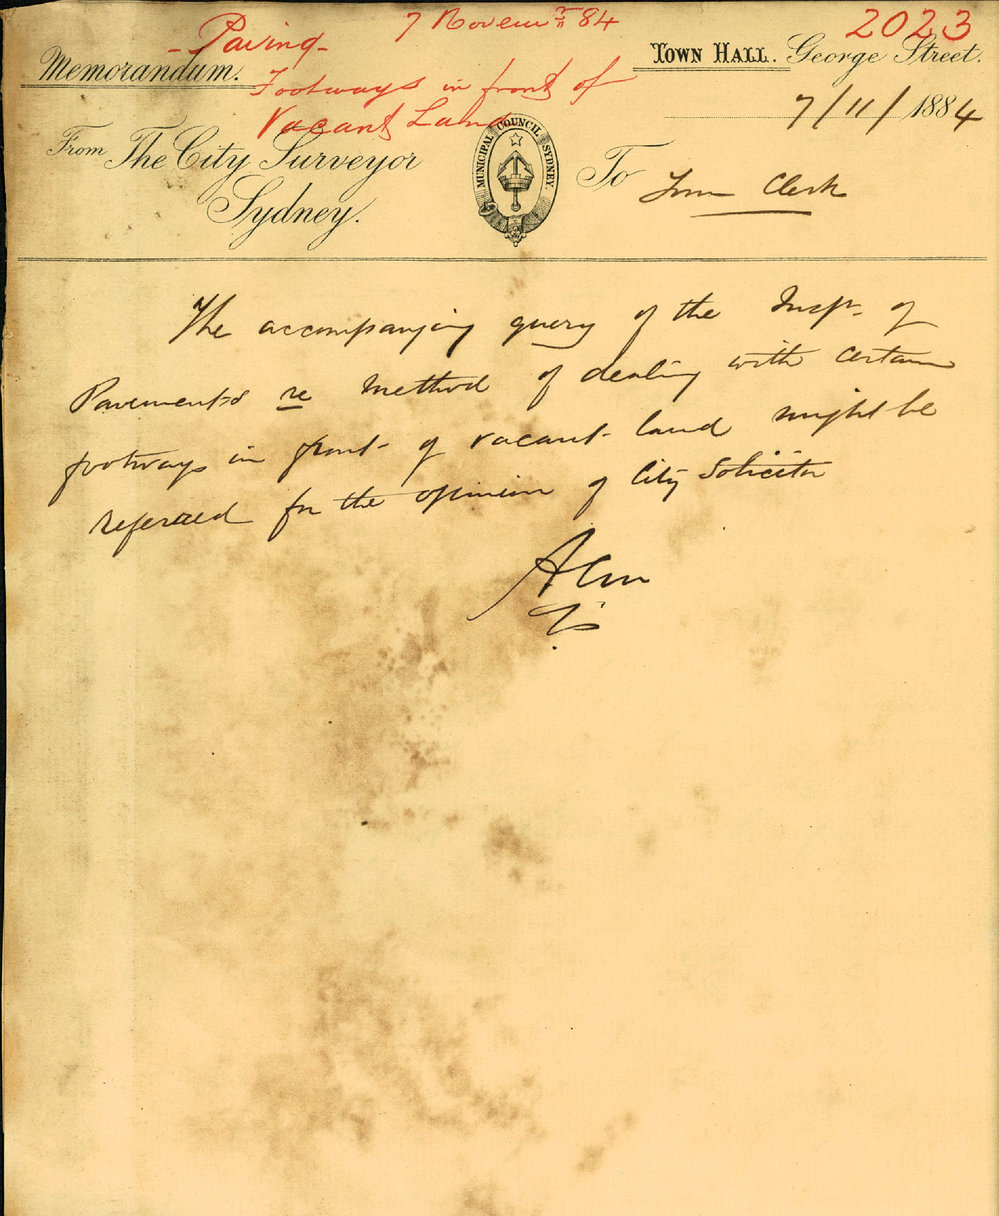 7 Novem^r 84
2023
- Paving -
Footways in front of
Vacant Land
Memorandum.
TOWN HALL. George Street.
7/11/1884
From The City Surveyor
Sydney.
MUNICIPAL COUNCIL SYDNEY.
To Town Clerk
The accompanying query of the Insp^r. of
Pavements re Method of dealing with certain
footways in front of vacant land might be
referred for the opinion of City Solicitor